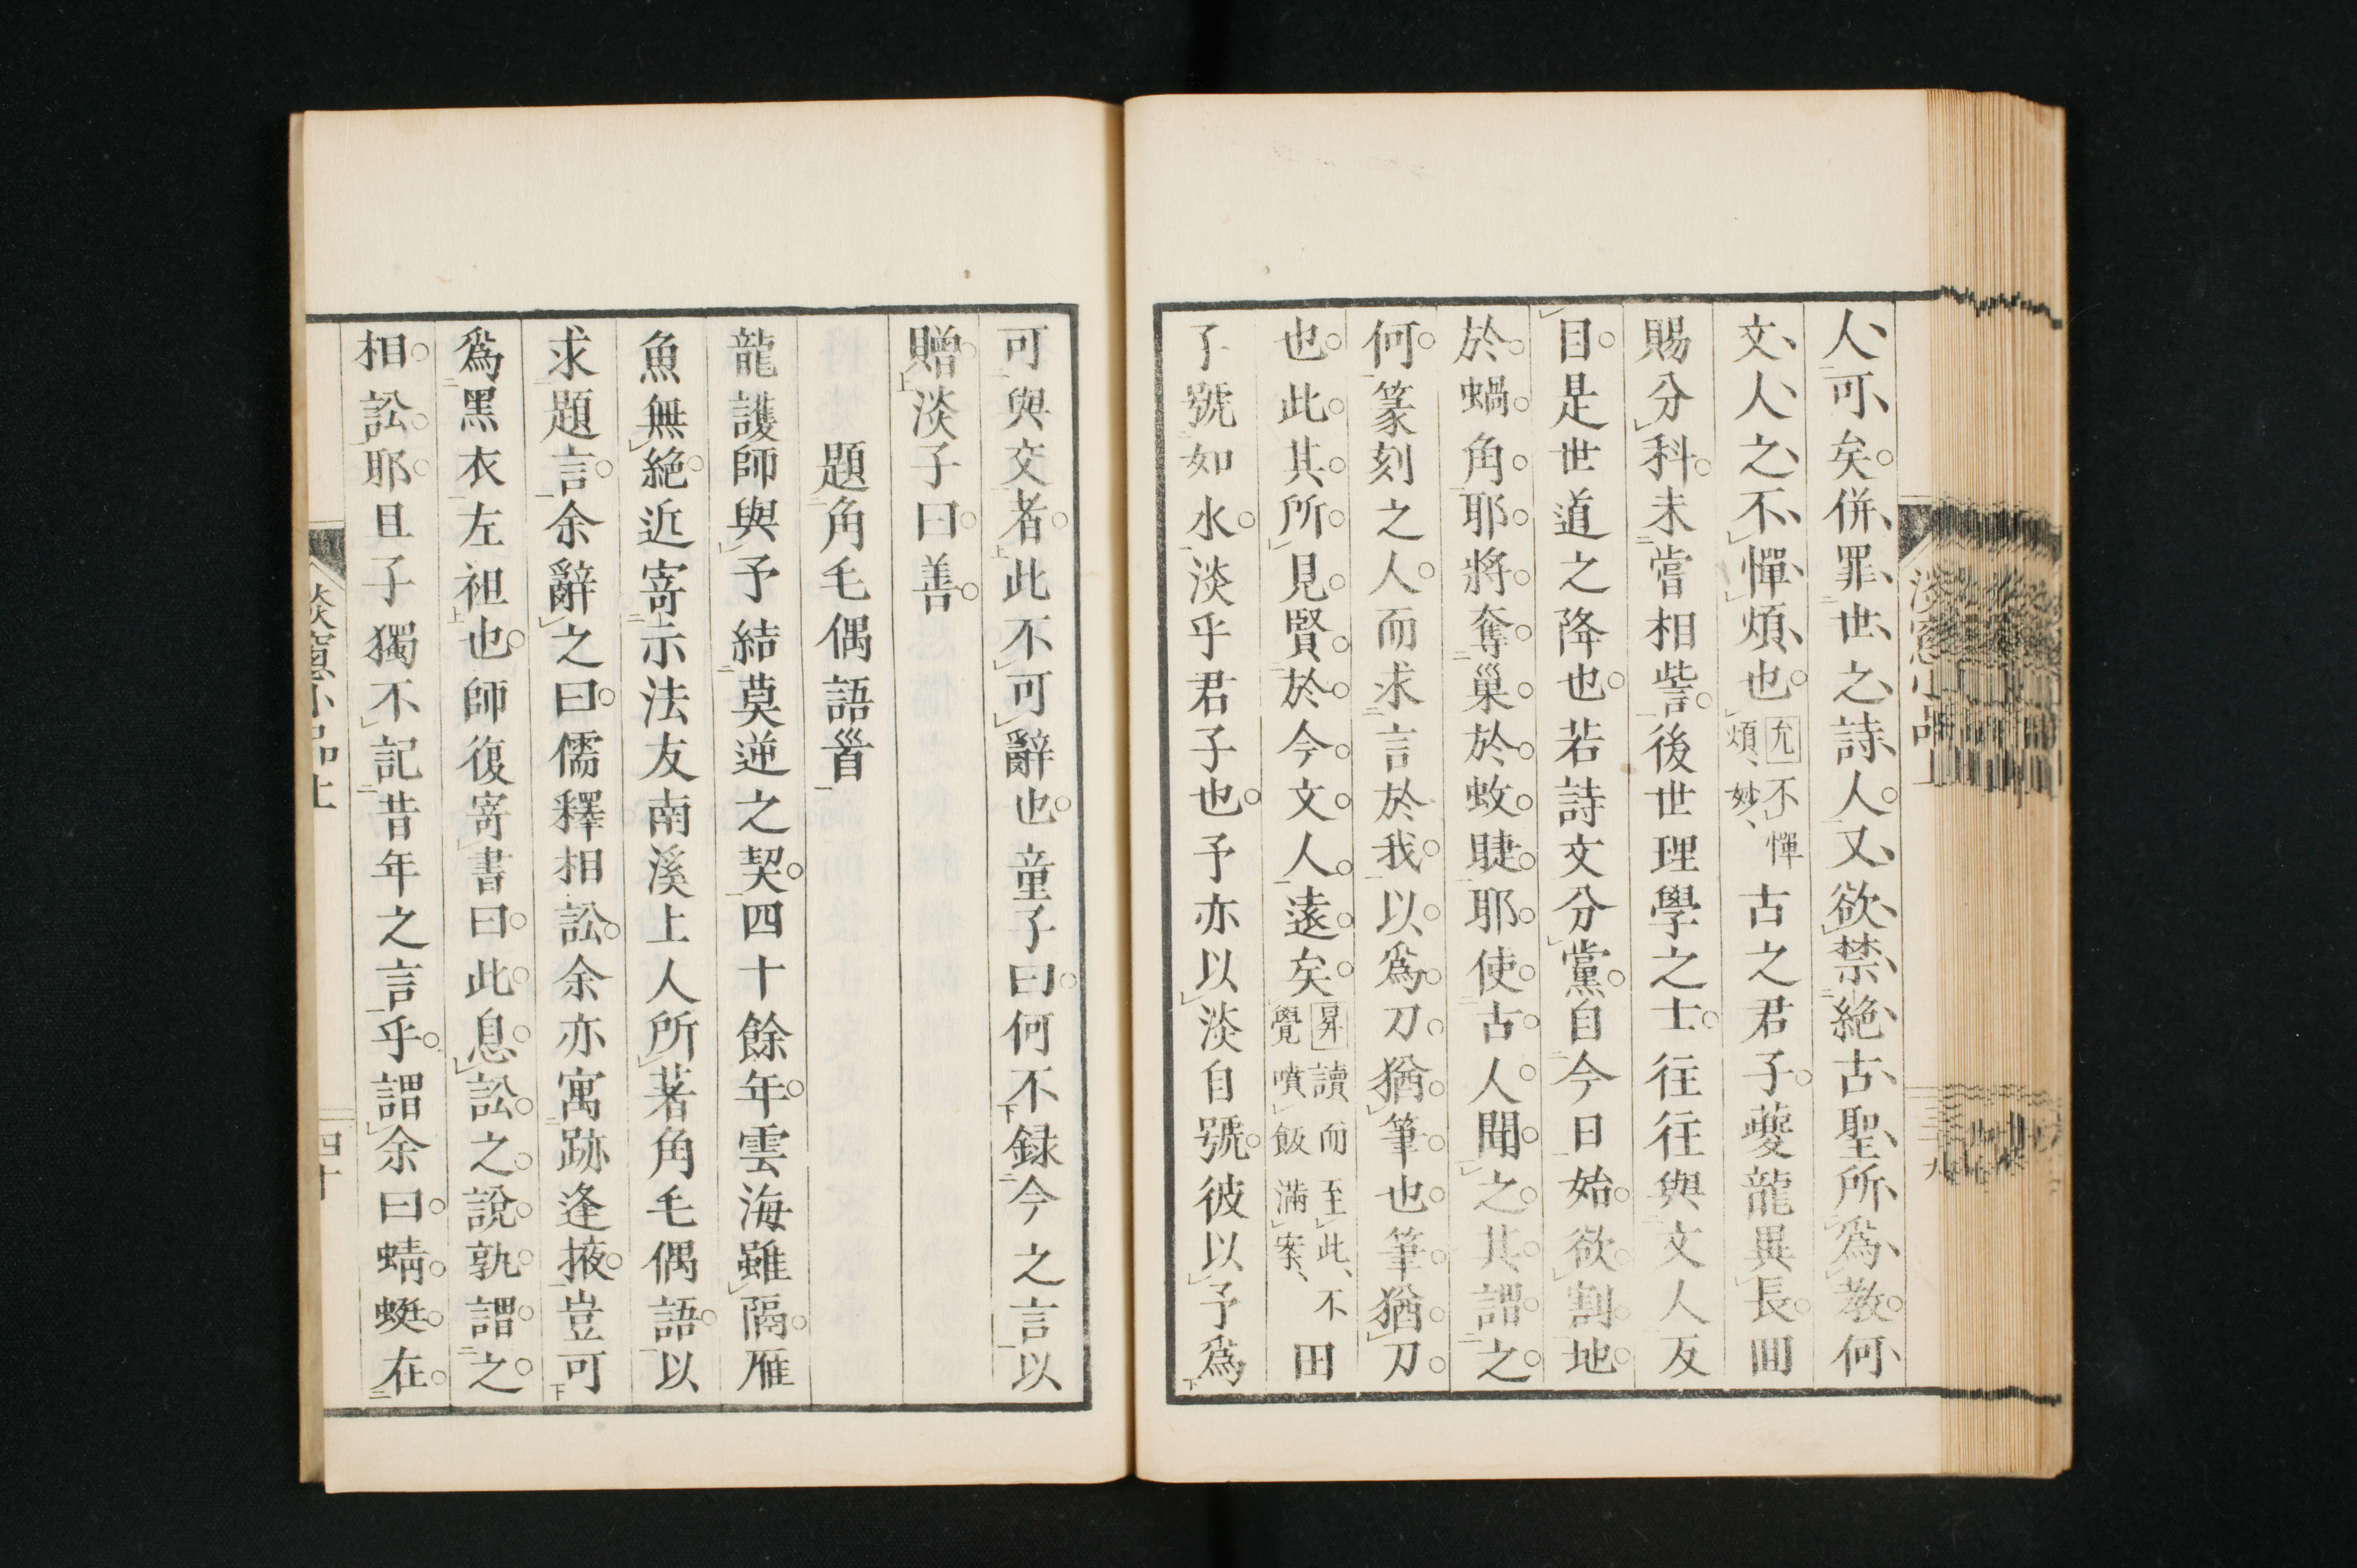 人可矣併罪世之詩人又欲禁絕古聖所爲教何
文人之不憚煩也允不憚煩妙古之君子夔龍異長回
賜分科未嘗相訾後世理學之士往往與文人反
目是世道之降也若詩文分黨自今日始欲割地
於蝸角耶將奪巢於蚊睫耶使古人聞之其謂之
何篆刻之人而求言於我以爲刀猶筆也筆猶刀
也此其所見賢於今文人遠矣昇讀而至此不覺噴飯滿案田
子號如水淡乎君子也予亦以淡自號彼以予爲
淡窻小品上
三十九
可與交者此不可辭也童子曰何不録今之言以
贈淡子曰善
題角毛偶語首
龍護師與予結莫逆之契四十餘年雲海雖隔雁
魚無絕近寄示法友南溪上人所著角毛偶語以
求題言余辭之曰儒釋相訟余亦寓跡逢掖豈可
爲黑衣左袒也師復寄書曰此息訟之說孰謂之
相訟耶且子獨不記昔年之言乎謂余曰蜻蜓在
淡窻小品上
四十